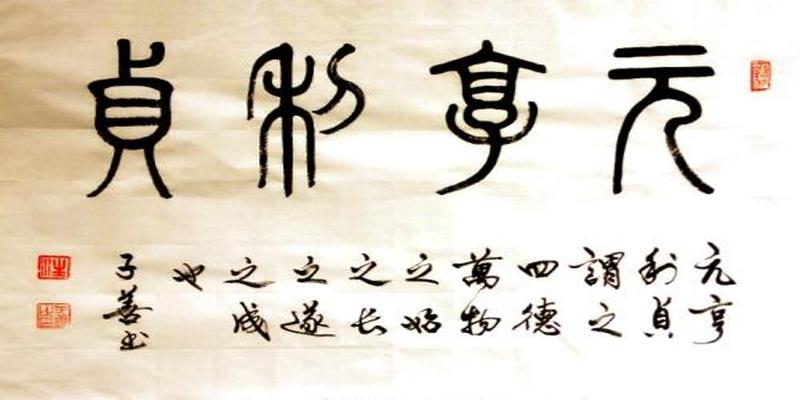 元亨利貞
元亨
利貞
謂之
四德
萬物
之始
之长
之遂
之成
也
子善书